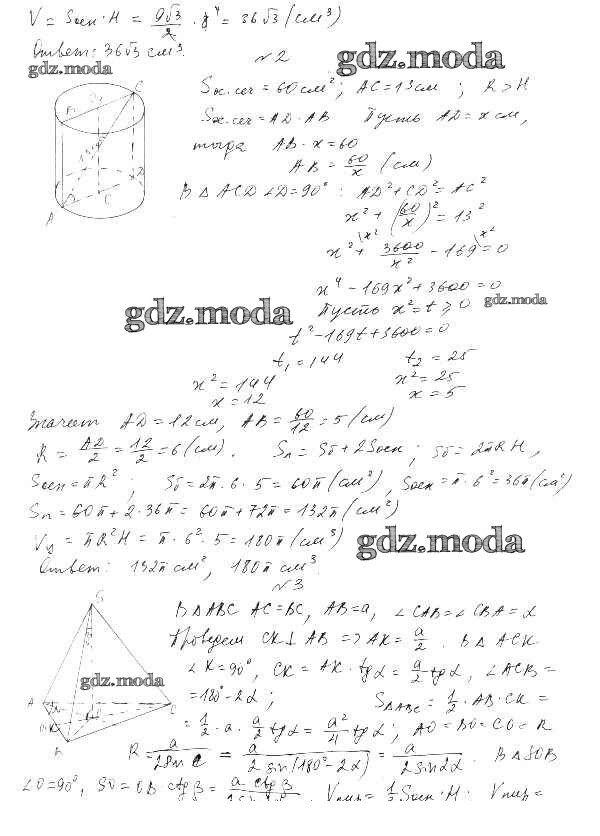 V = Sосн · H = 9√3/2 · 8⁴ = 36√3 (см³)
Ответ: 36√3 см³.
gdz.moda
№2
gdz.moda
Sос.сеч = 60 см²; AC = 13 см; R > H
Sос.сеч = AD · AB Пусть AD = x см,
тогда AB · x = 60
AB = 60/x (см)
В △ ACD ∠D = 90° : AD² + CD² = AC²
x² + (60/x)² = 13²
x² + 3600/x² - 169 = 0
x⁴ - 169x² + 3600 = 0
Пусть x² = t ⩾ 0
gdz.moda
gdz.moda
t² - 169t + 3600 = 0
t₁ = 144 t₂ = 25
x² = 144 x² = 25
x = 12 x = 5
Значит AD = 12 см, AB = 60/12 = 5 (см)
R = AD/2 = 12/2 = 6 (см). Sп = Sб + 2Sосн; Sб = 2πRH,
Sосн = πR²; Sб = 2π · 6 · 5 = 60π (см²), Sосн = π · 6² = 36π (см²)
Sп = 60π + 2 · 36π = 60π + 72π = 132π (см²)
Vц = πR²H = π · 6² · 5 = 180π (см³)
gdz.moda
Ответ: 132π см², 180π см³.
№3
В △ ABC AC = BC, AB = a, ∠CAB = ∠CBA = α
Проведем CK ⊥ AB => AK = a/2. В △ ACK
gdz.moda
∠K = 90°, CK = AK · tgα = a/2 tgα, ∠ACB =
= 180° - 2α; S△ABC = 1/2 · AB · CK =
= 1/2 · a · a/2 tgα = a²/4 tgα; AO = BO = CO = R
R = a/2sin C = a/2sin(180° - 2α) = a/2sin2α. В △ SOB
∠O = 90°, SO = OB ctgβ = a ctgβ/2sin2α. Vпир = 1/3 Sосн · H. Vпир =